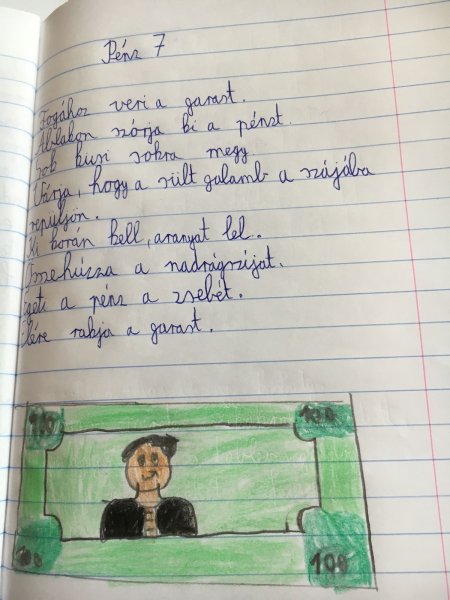 Pénz 7
Fogához veri a garast.
Ablakon szórja ki a pénzt.
Sok kicsi sokra megy
Várja, hogy a sült galamb a szájába
repüljön.
Ki korán kell, aranyat lel.
Összehúzza a nadrágszíját.
Égeti a pénz a zsebét.
Élére rakja a garast.
100
100
100
100